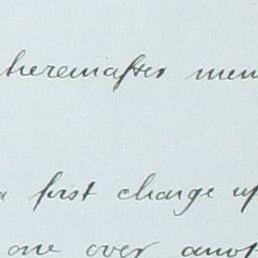 hereinafter men
a first charge up
one over anot